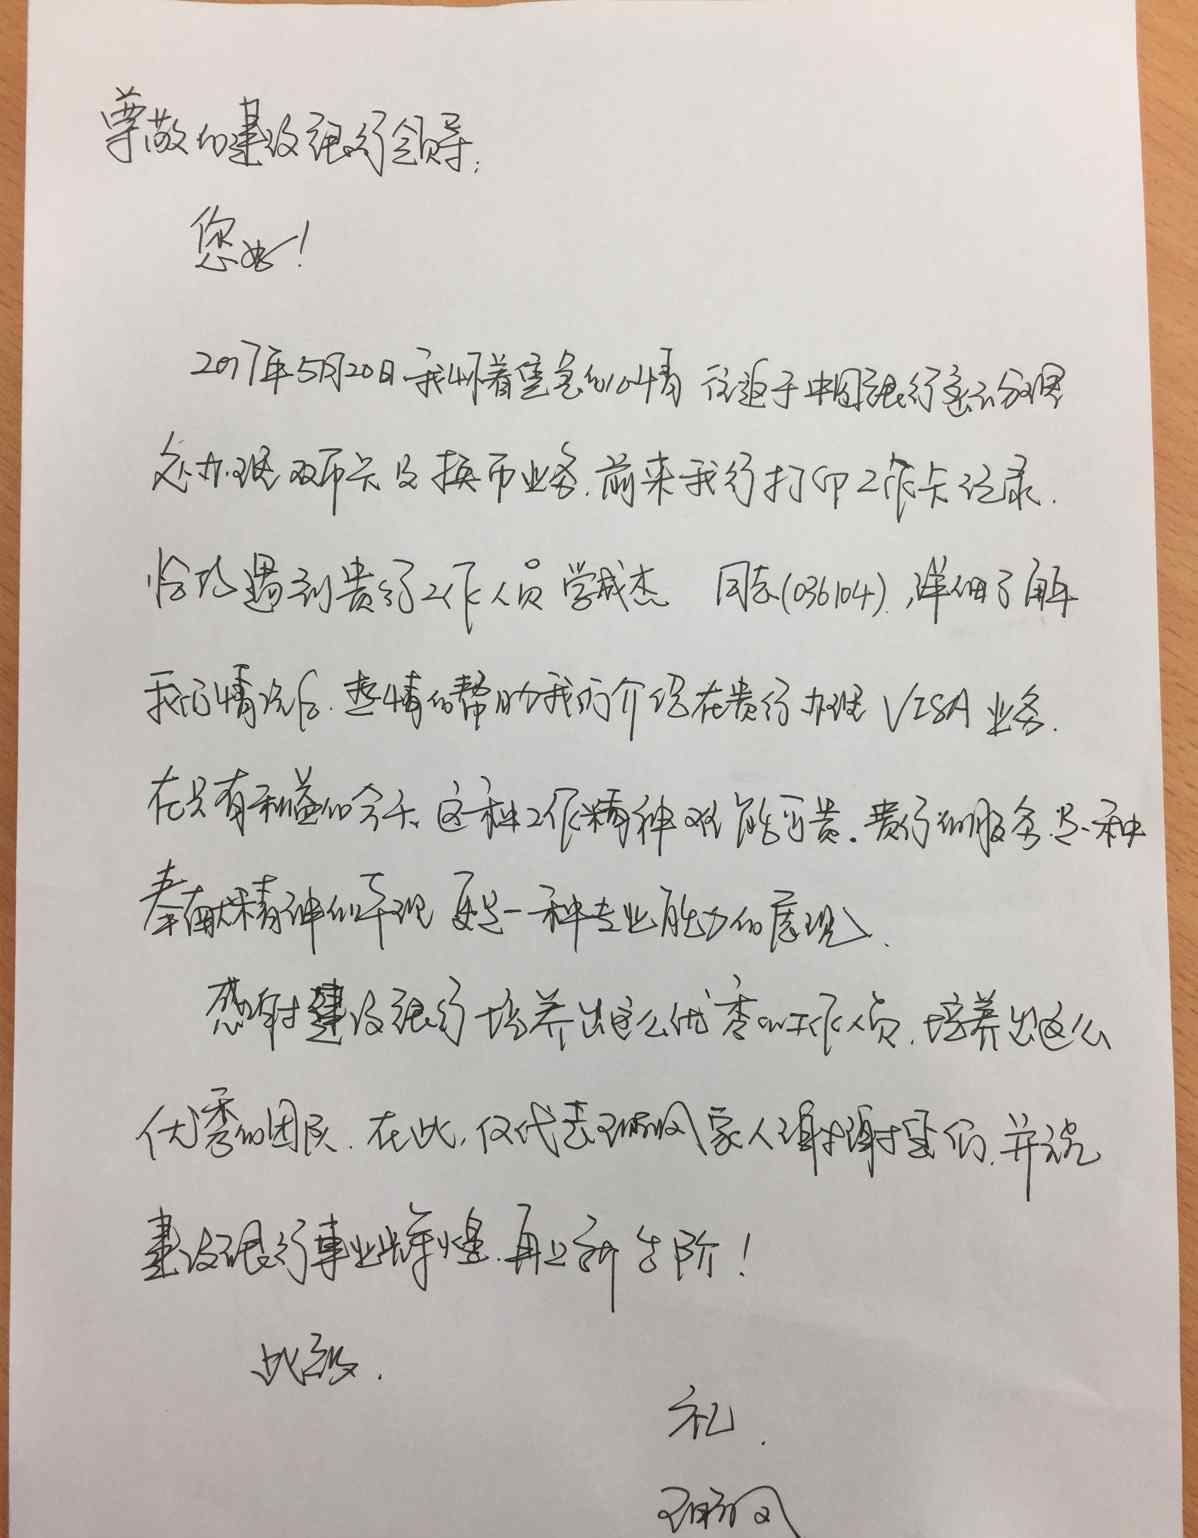 尊敬的建设银行领导:
您好!
2017年5月20日.我怀着焦急的心情 往返于中国银行 分理
处办理双币卡及换币业务.前来我行打印工作卡记录.
恰巧遇到贵行工作人员 学成杰 同志(036104),详细了解
我的情况后.热情的帮助我的介绍在贵行办理VISA业务.
在只有利益的今天.这种工作精神难能可贵.贵行的服务是一种
奉献精神的体现 更是一种专业能力的展现.
感谢建设银行培养出这么优秀的工作人员.培养出这么
优秀的团队.在此,仅代表 家人谢谢您们.并祝
建设银行事业辉煌.再上新台阶!
此致.
礼.